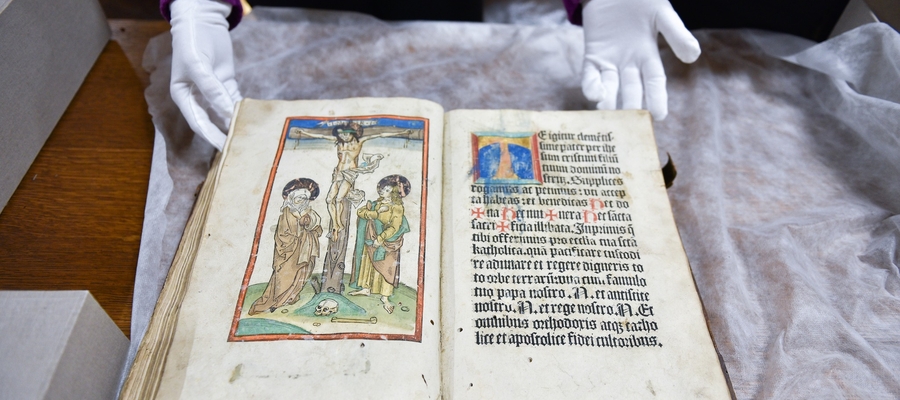 T E igitur clemẽtis
sime pater per ihe
sum cristum filiũ
tuum dominũ no
strũ. Supplices
rogamus ac petimus: vti accep
ta habeas: et benedicas hec do
✠na hec mu✠nera hec sacta
sacri✠ficia illibata. Inprimis q̃
tibi offerimus pro ecclia tua sctã
katholica. quã pacificare custodi
re adunare et regere digneris to
to orbe terrarũ: vna cum famulo
tuo papa nostro. N. et antistite
nostro. N. et rege nostro. N. Et
omnibus orthodoxis atqȝ catho
lice et apostolice fidei cultoribus.